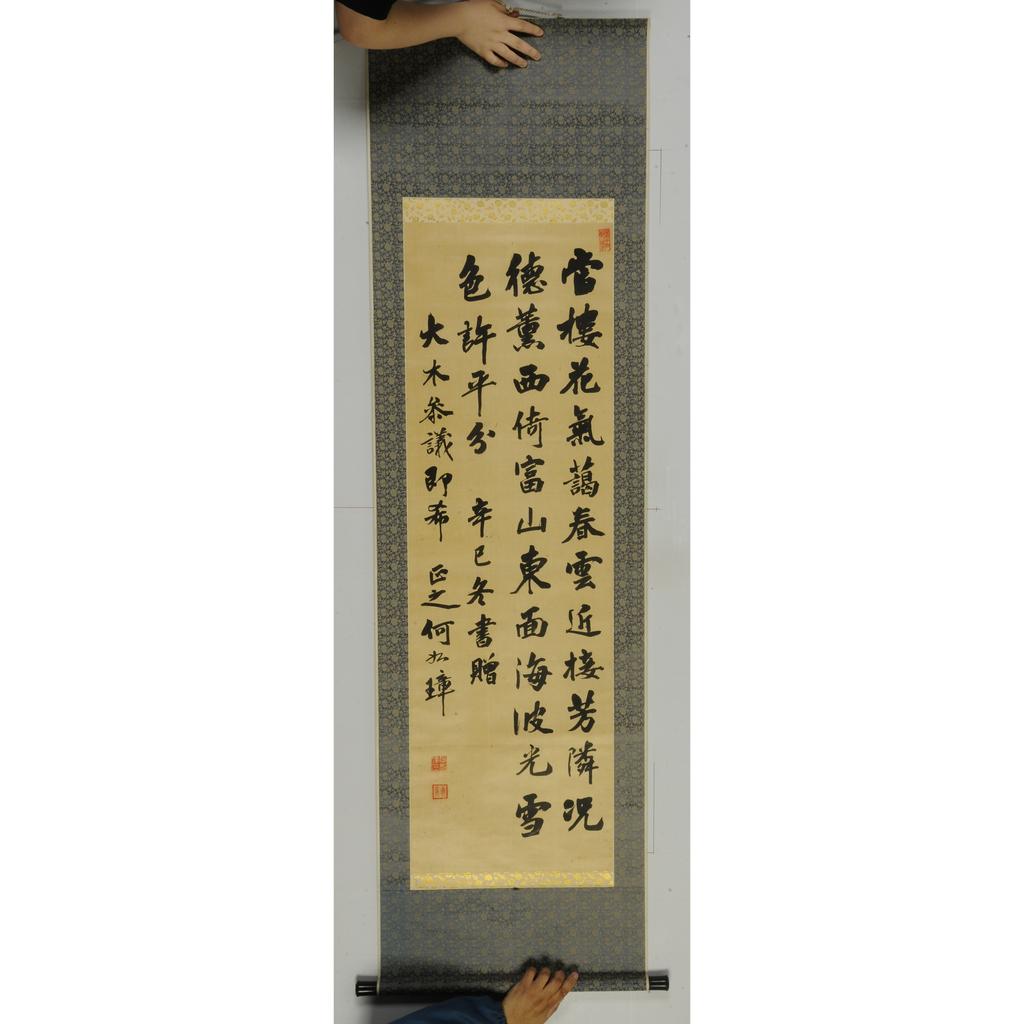 當樓花氣藹春雲近接芳隣况
德薰西倚富山東面海波光雪
色許平分 辛巳冬書贈
大木參議即希 正之何如璋